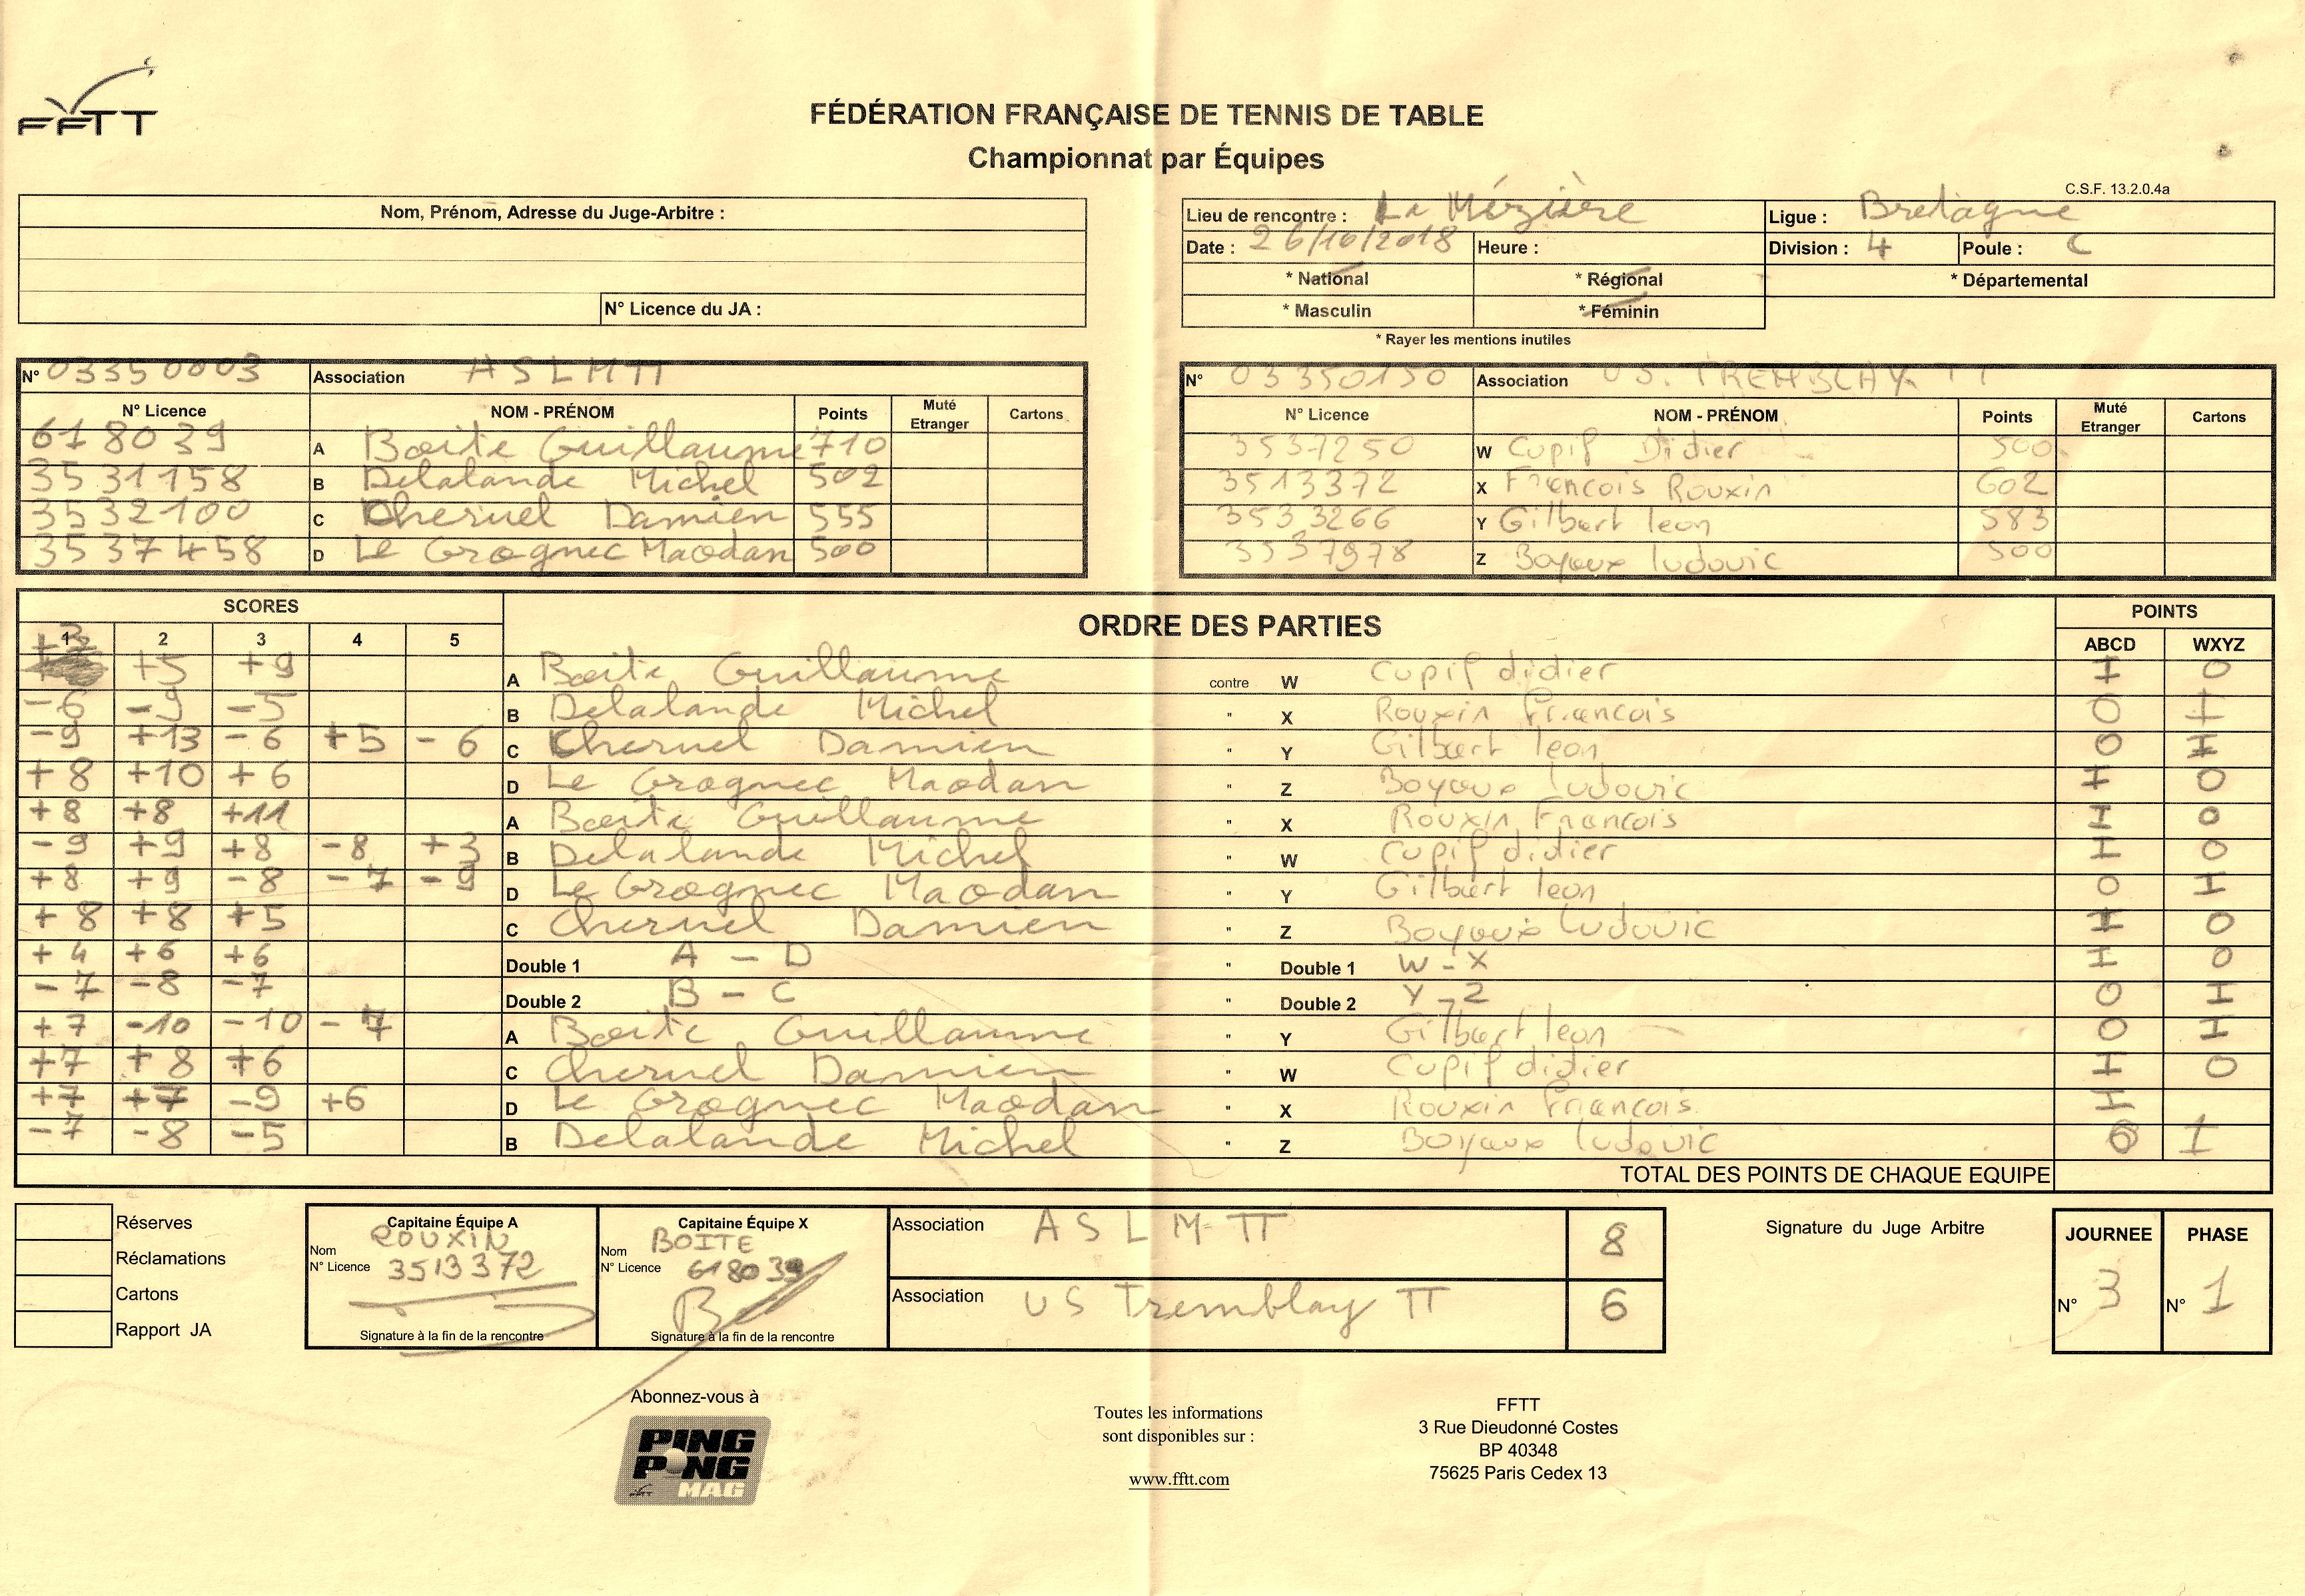 FFTT
FÉDÉRATION FRANÇAISE DE TENNIS DE TABLE
Championnat par Équipes
C.S.F. 13.2.0.4a
Nom, Prénom, Adresse du Juge-Arbitre :
N° Licence du JA :
Lieu de rencontre : La Mézière Ligue : Bretagne
Date : 26/10/2018 Heure : Division : 4 Poule : C
* National * Régional * Départemental
* Masculin * Féminin
* Rayer les mentions inutiles
N° 03350003 Association ASLMTT
N° Licence NOM - PRÉNOM Points Muté Etranger Cartons
618039 A Boite Guillaume 710
3531158 B Delalande Michel 502
3532100 C Cheruel Damien 555
3537458 D Le Grognec Maodan 500
N° 03350150 Association U.S. TREMBLAY TT
N° Licence NOM - PRÉNOM Points Muté Etranger Cartons
3537250 W Cupif Didier 500
3513372 X Francois Rouxin 602
3533266 Y Gilbert leon 583
3537978 Z Boyaux ludovic 500
SCORES ORDRE DES PARTIES POINTS
1 2 3 4 5 ABCD WXYZ
+5 +9 A Boite Guillaume contre W Cupif didier I 0
-6 -9 -5 B Delalande Michel " X Rouxin Francois 0 I
-9 +13 -6 +5 -6 C Cheruel Damien " Y Gilbert leon 0 I
+8 +10 +6 D Le Grognec Maodan " Z Boyaux ludovic I 0
+8 +8 +11 A Boite Guillaume " X Rouxin Francois I 0
-9 +9 +8 -8 +3 B Delalande Michel " W Cupif didier I 0
+8 +9 -8 -7 -9 D Le Grognec Maodan " Y Gilbert leon 0 I
+8 +8 +5 C Cheruel Damien " Z Boyaux ludovic I 0
+4 +6 +6 Double 1 A - D " Double 1 W - X I 0
-7 -8 -7 Double 2 B - C " Double 2 Y - Z 0 I
+7 -10 -10 -7 A Boite Guillaume " Y Gilbert leon 0 I
+7 +8 +6 C Cheruel Damien " W Cupif didier I 0
+7 +7 -9 +6 D Le Grognec Maodan " X Rouxin Francois I
-7 -8 -5 B Delalande Michel " Z Boyaux ludovic 0 1
TOTAL DES POINTS DE CHAQUE EQUIPE
Réserves
Réclamations
Cartons
Rapport JA
Capitaine Équipe A
Nom ROUXIN
N° Licence 3513372
Signature à la fin de la rencontre
Capitaine Équipe X
Nom BOITE
N° Licence 618039
Signature à la fin de la rencontre
Association ASLM-TT 8
Association US Tremblay TT 6
Signature du Juge Arbitre
JOURNEE PHASE
N° 3 N° 1
Abonnez-vous à
PING PONG MAG
Toutes les informations
sont disponibles sur :
www.fftt.com
FFTT
3 Rue Dieudonné Costes
BP 40348
75625 Paris Cedex 13